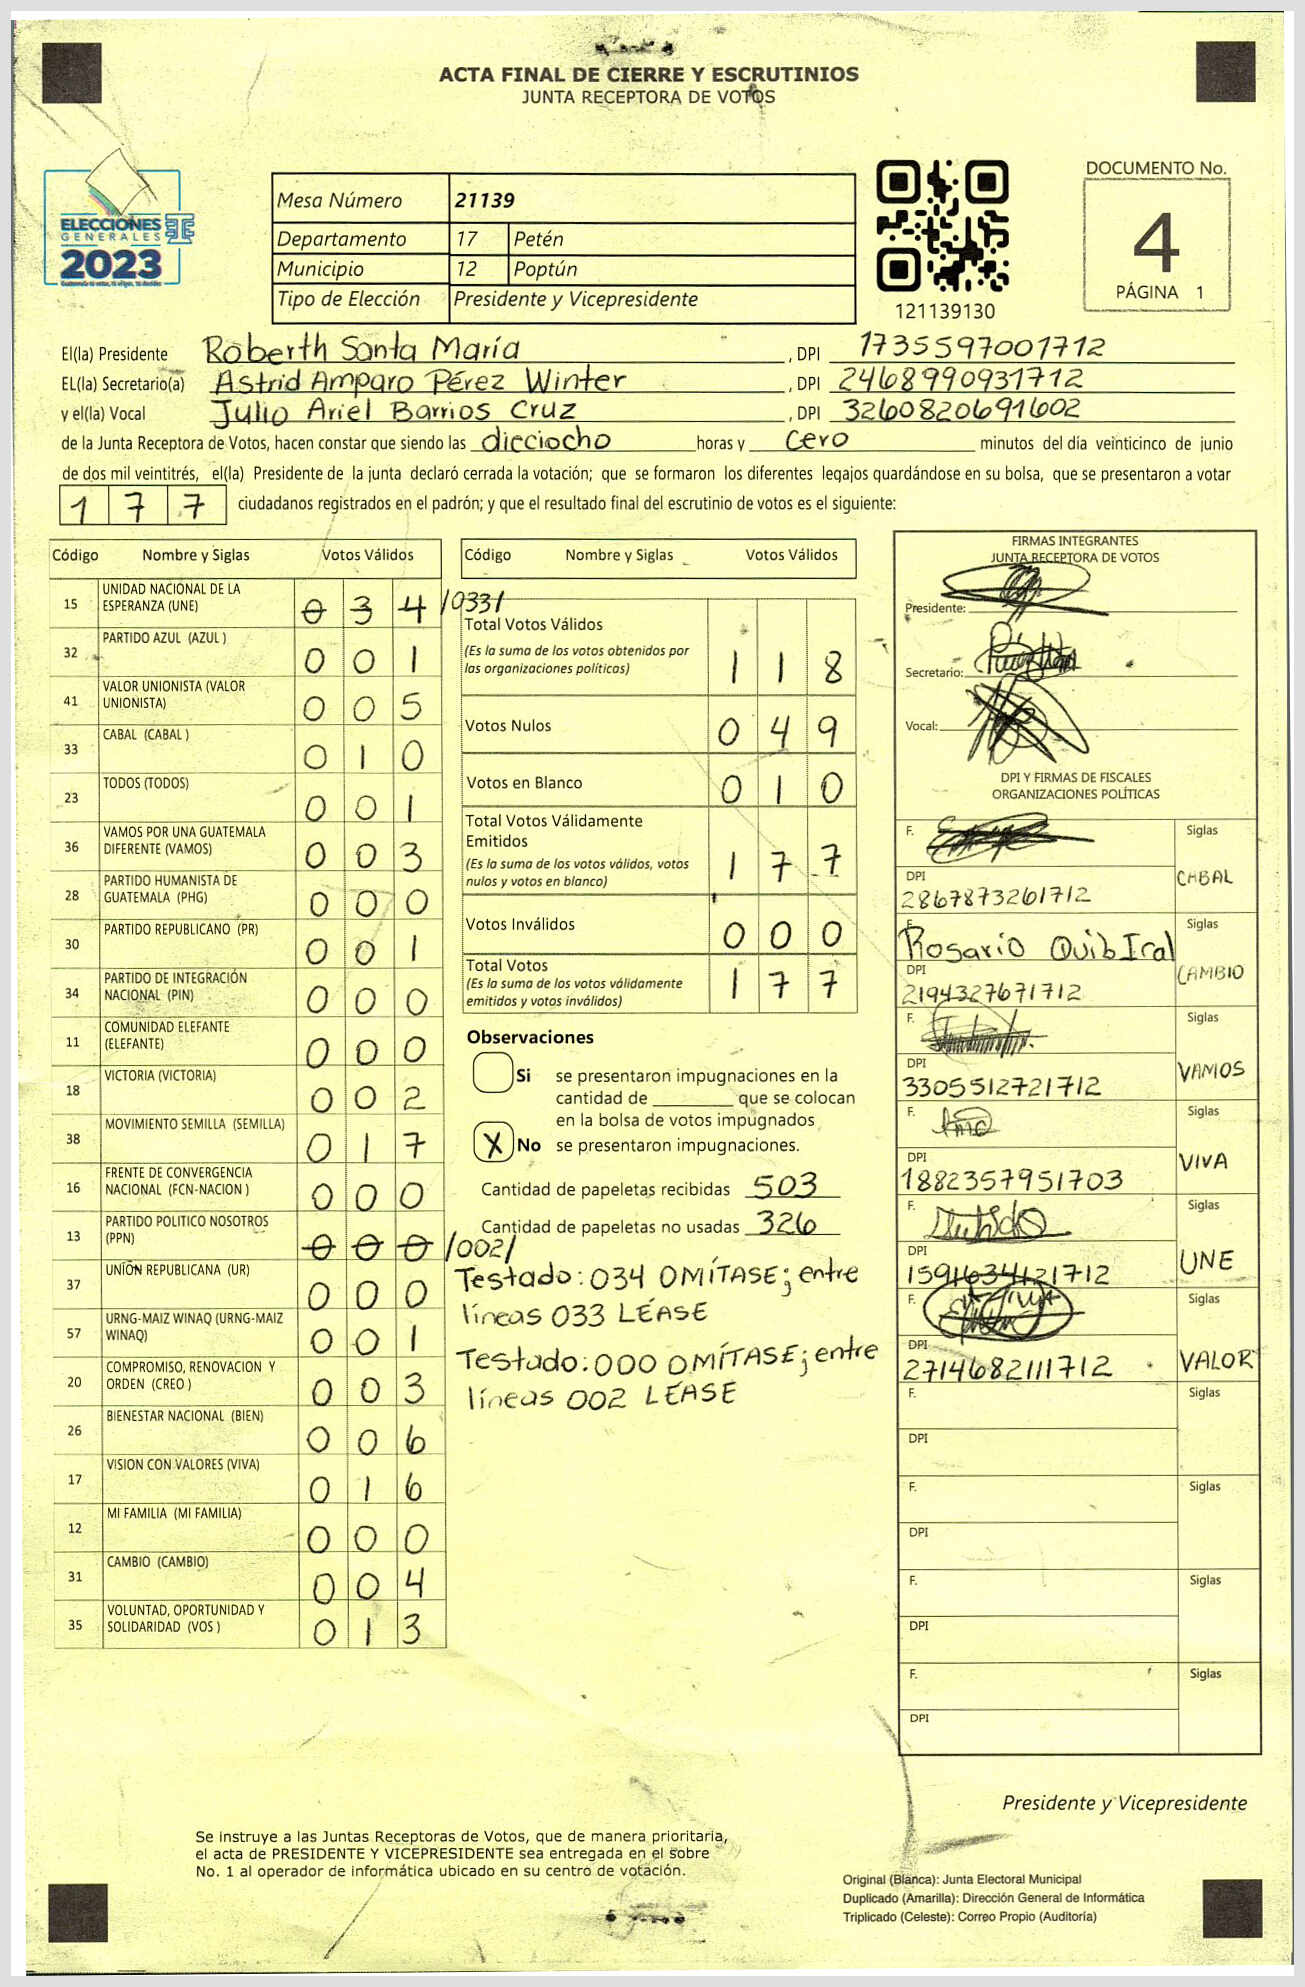 ACTA FINAL DE CIERRE Y ESCRUTINIOS
JUNTA RECEPTORA DE VOTOS
ELECCIONES
GENERALES
2023
Mesa Número 21139
Departamento 17 Petén
Municipio 12 Poptún
Tipo de Elección Presidente y Vicepresidente
121139130
DOCUMENTO No.
4
PÁGINA 1
El(la) Presidente Roberth Santa María , DPI 1735597001712
EL(la) Secretario(a) Astrid Amparo Pérez Winter , DPI 2468990931712
y el(la) Vocal Julio Ariel Barrios Cruz , DPI 3260820691602
de la Junta Receptora de Votos, hacen constar que siendo las dieciocho horas y cero minutos del día veinticinco de junio
de dos mil veintitrés, el(la) Presidente de la junta declaró cerrada la votación; que se formaron los diferentes legajos quardándose en su bolsa, que se presentaron a votar
1 7 7 ciudadanos registrados en el padrón; y que el resultado final del escrutinio de votos es el siguiente:
Código Nombre y Siglas Votos Válidos
15 UNIDAD NACIONAL DE LA
ESPERANZA (UNE) 0 3 4 /033/
32 PARTIDO AZUL (AZUL ) 0 0 1
41 VALOR UNIONISTA (VALOR
UNIONISTA) 0 0 5
33 CABAL (CABAL ) 0 1 0
23 TODOS (TODOS) 0 0 1
36 VAMOS POR UNA GUATEMALA
DIFERENTE (VAMOS) 0 0 3
28 PARTIDO HUMANISTA DE
GUATEMALA (PHG) 0 0 0
30 PARTIDO REPUBLICANO (PR) 0 0 1
34 PARTIDO DE INTEGRACIÓN
NACIONAL (PIN) 0 0 0
11 COMUNIDAD ELEFANTE
(ELEFANTE) 0 0 0
18 VICTORIA (VICTORIA) 0 0 2
38 MOVIMIENTO SEMILLA (SEMILLA) 0 1 7
16 FRENTE DE CONVERGENCIA
NACIONAL (FCN-NACION ) 0 0 0
13 PARTIDO POLITICO NOSOTROS
(PPN) 0 0 0 /002/
37 UNIÓN REPUBLICANA (UR) 0 0 0
57 URNG-MAIZ WINAQ (URNG-MAIZ
WINAQ) 0 0 1
20 COMPROMISO, RENOVACION Y
ORDEN (CREO ) 0 0 3
26 BIENESTAR NACIONAL (BIEN) 0 0 6
17 VISION CON VALORES (VIVA) 0 1 6
12 MI FAMILIA (MI FAMILIA) 0 0 0
31 CAMBIO (CAMBIO) 0 0 4
35 VOLUNTAD, OPORTUNIDAD Y
SOLIDARIDAD (VOS ) 0 1 3
Código Nombre y Siglas Votos Válidos
Total Votos Válidos
(Es la suma de los votos obtenidos por
las organizaciones políticas) 1 1 8
Votos Nulos 0 4 9
Votos en Blanco 0 1 0
Total Votos Válidamente
Emitidos
(Es la suma de los votos válidos, votos
nulos y votos en blanco) 1 7 7
Votos Inválidos 0 0 0
Total Votos
(Es la suma de los votos válidamente
emitidos y votos inválidos) 1 7 7
Observaciones
Si se presentaron impugnaciones en la
cantidad de ________ que se colocan
en la bolsa de votos impugnados
X No se presentaron impugnaciones.
Cantidad de papeletas recibidas 503
Cantidad de papeletas no usadas 326
Testado: 034 OMÍTASE; entre
líneas 033 LÉASE
Testado: 000 OMÍTASE; entre
líneas 002 LÉASE
FIRMAS INTEGRANTES
JUNTA RECEPTORA DE VOTOS
Presidente:
Secretario:
Vocal:
DPI Y FIRMAS DE FISCALES
ORGANIZACIONES POLÍTICAS
F. Siglas
CABAL
DPI
2867873261712
F. Siglas
Rosario Quib Ical
CAMBIO
DPI
2194327671712
F. Siglas
VAMOS
DPI
3305512721712
F. Siglas
VIVA
DPI
1882357951703
F. Siglas
UNE
DPI
1591634121712
F. Siglas
VALOR
DPI
2714682111712
F. Siglas
DPI
F. Siglas
DPI
F. Siglas
DPI
F. Siglas
DPI
Presidente y Vicepresidente
Se instruye a las Juntas Receptoras de Votos, que de manera prioritaria,
el acta de PRESIDENTE Y VICEPRESIDENTE sea entregada en el sobre
No. 1 al operador de informática ubicado en su centro de votación.
Original (Blanca): Junta Electoral Municipal
Duplicado (Amarilla): Dirección General de Informática
Triplicado (Celeste): Correo Propio (Auditoría)